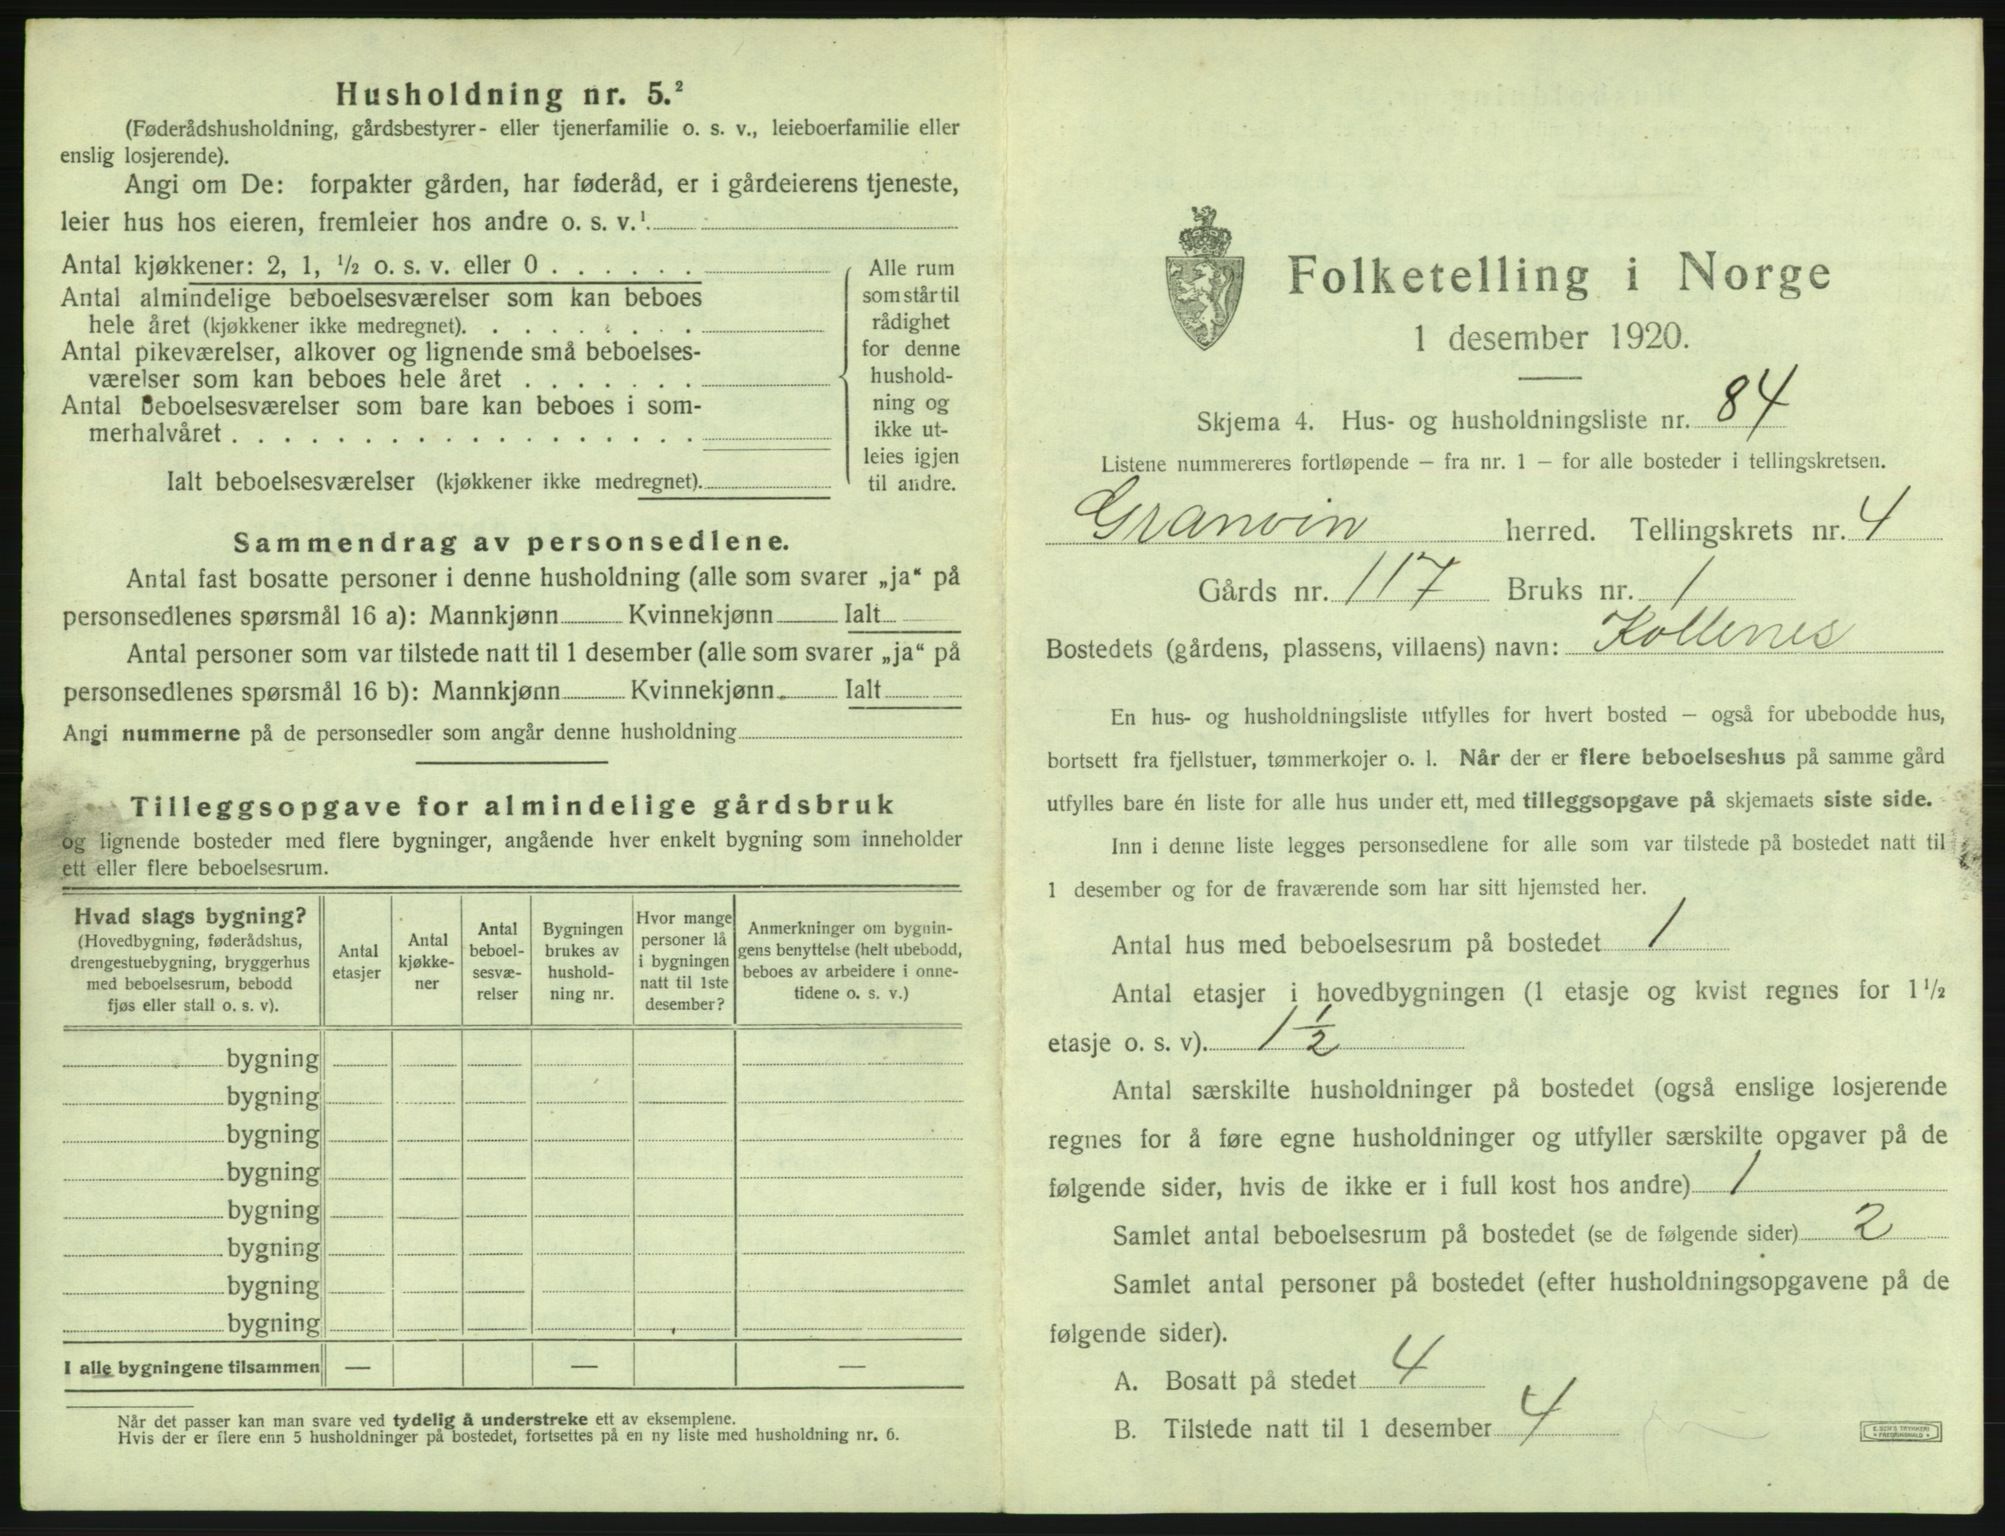 Husholdning nr. 5.²
(Føderådshusholdning, gårdsbestyrer- eller tjenerfamilie o. s. v., leieboerfamilie eller
enslig losjerende).
Angi om De: forpakter gården, har føderåd, er i gårdeierens tjeneste,
leier hus hos eieren, fremleier hos andre o. s. v.¹
Antal kjøkkener: 2, 1, ¹/₂ o. s. v. eller 0 . . . . . .
Antal almindelige beboelsesværelser som kan beboes
hele året (kjøkkener ikke medregnet). . . . . . . . .
Antal pikeværelser, alkover og lignende små beboelses-
værelser som kan beboes hele året . . . . . . .
Antal beboelsesværelser som bare kan beboes i som-
merhalvåret . . . . . . . . . . . . . . . . . .
Ialt beboelsesværelser (kjøkkener ikke medregnet).
Alle rum
som står til
rådighet
for denne
hushold-
ning og
ikke ut-
leies igjen
til andre.
Sammendrag av personsedlene.
Antal fast bosatte personer i denne husholdning (alle som svarer „ja“ på
personsedlenes spørsmål 16 a): Mannkjønn Kvinnekjønn Ialt
Antal personer som var tilstede natt til 1 desember (alle som svarer „ja“ på
personsedlenes spørsmål 16 b): Mannkjønn Kvinnekjønn Ialt
Angi nummerne på de personsedler som angår denne husholdning
Tilleggsopgave for almindelige gårdsbruk
og lignende bosteder med flere bygninger, angående hver enkelt bygning som inneholder
ett eller flere beboelsesrum.
Hvad slags bygning?
(Hovedbygning, føderådshus,
drengestuebygning, bryggerhus
med beboelsesrum, bebodd
fjøs eller stall o. s. v).
Antal
etasjer
Antal
kjøkke-
ner
Antal
beboel-
sesvæ-
relser
Bygningen
brukes av
hushold-
ning nr.
Hvor mange
personer lå
i bygningen
natt til 1ste
desember?
Anmerkninger om bygnin-
gens benyttelse (helt ubebodd,
beboes av arbeidere i onne-
tidene o. s. v.)
bygning
bygning
bygning
bygning
bygning
bygning
bygning
bygning
I alle bygningene tilsammen — — —
Når det passer kan man svare ved tydelig å understreke ett av eksemplene.
Hvis der er flere enn 5 husholdninger på bostedet, fortsettes på en ny liste med husholdning nr. 6.
Folketelling i Norge
1 desember 1920.
Skjema 4. Hus- og husholdningsliste nr. 84
Listene nummereres fortløpende – fra nr. 1 – for alle bosteder i tellingskretsen.
Granvin herred. Tellingskrets nr. 4
Gårds nr. 117 Bruks nr. 1
Bostedets (gårdens, plassens, villaens) navn: Kollenes
En hus- og husholdningsliste utfylles for hvert bosted – også for ubebodde hus,
bortsett fra fjellstuer, tømmerkojer o. l. Når der er flere beboelseshus på samme gård
utfylles bare én liste for alle hus under ett, med tilleggsopgave på skjemaets siste side.
Inn i denne liste legges personsedlene for alle som var tilstede på bostedet natt til
1 desember og for de fraværende som har sitt hjemsted her.
Antal hus med beboelsesrum på bostedet 1
Antal etasjer i hovedbygningen (1 etasje og kvist regnes for 1¹/₂
etasje o. s. v). 1 1/2
Antal særskilte husholdninger på bostedet (også enslige losjerende
regnes for å føre egne husholdninger og utfyller særskilte opgaver på de
følgende sider, hvis de ikke er i full kost hos andre) 1
Samlet antal beboelsesrum på bostedet (se de følgende sider) 2
Samlet antal personer på bostedet (efter husholdningsopgavene på de
følgende sider).
A. Bosatt på stedet 4
B. Tilstede natt til 1 desember 4